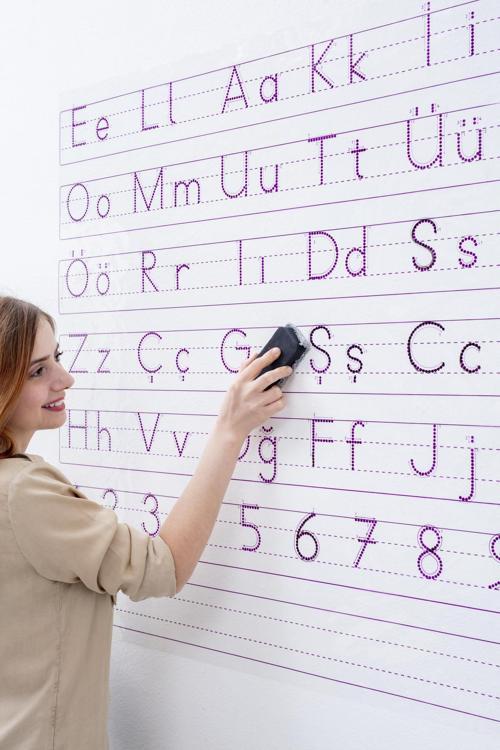 Ee Ll Aa Kk İi
Oo Mm Uu Tt Üü
Öö Rr Iı Dd Ss
Zz Çç G Şş Cc
Hh Vv ğ Ff Jj
2 3 5 6 7 8 9